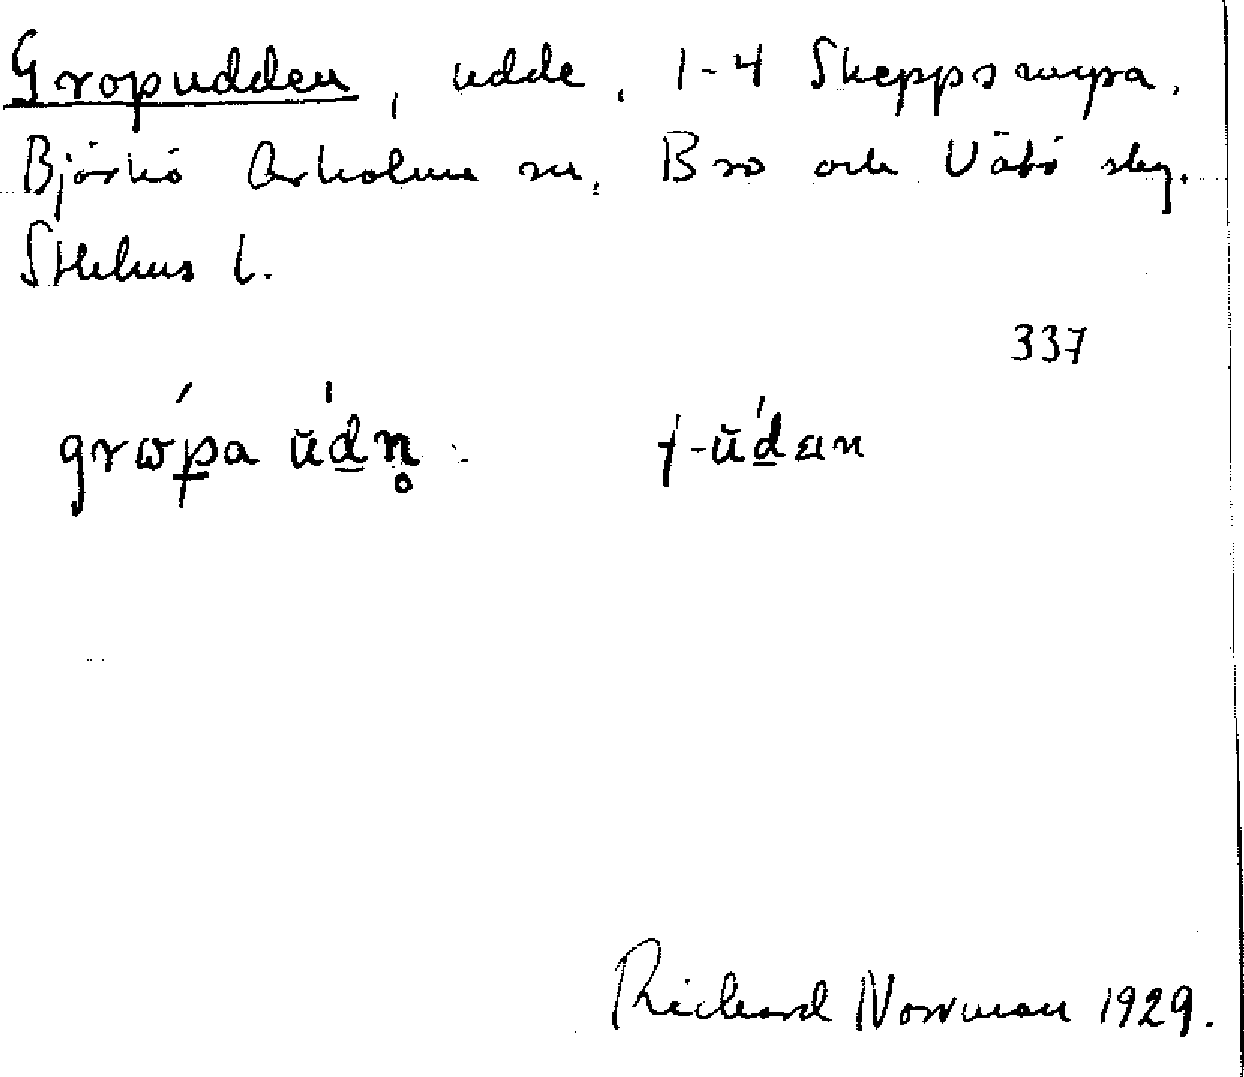 Gropudden, udde, 1-4 Skeppsmyra.
Björkö Arholma sn, Bro och Vätö skg.
Sthlms l.
337
grωpa ŭdn̥ ŧ-ŭdεn
Richard Norrman 1929.